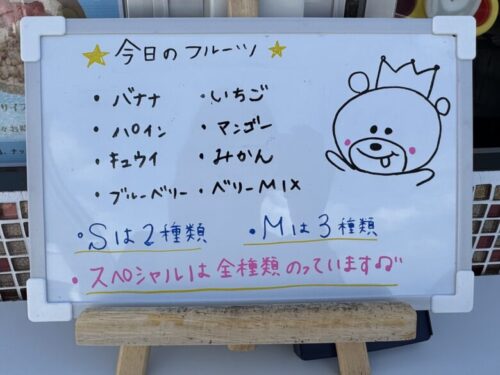 ★今日のフルーツ★
・バナナ ・いちご
・パイン ・マンゴー
・キュウイ ・みかん
・ブルーベリー ・ベリーMIX
・Sは2種類 ・Mは3種類
・スペシャルは全種類のっています♫